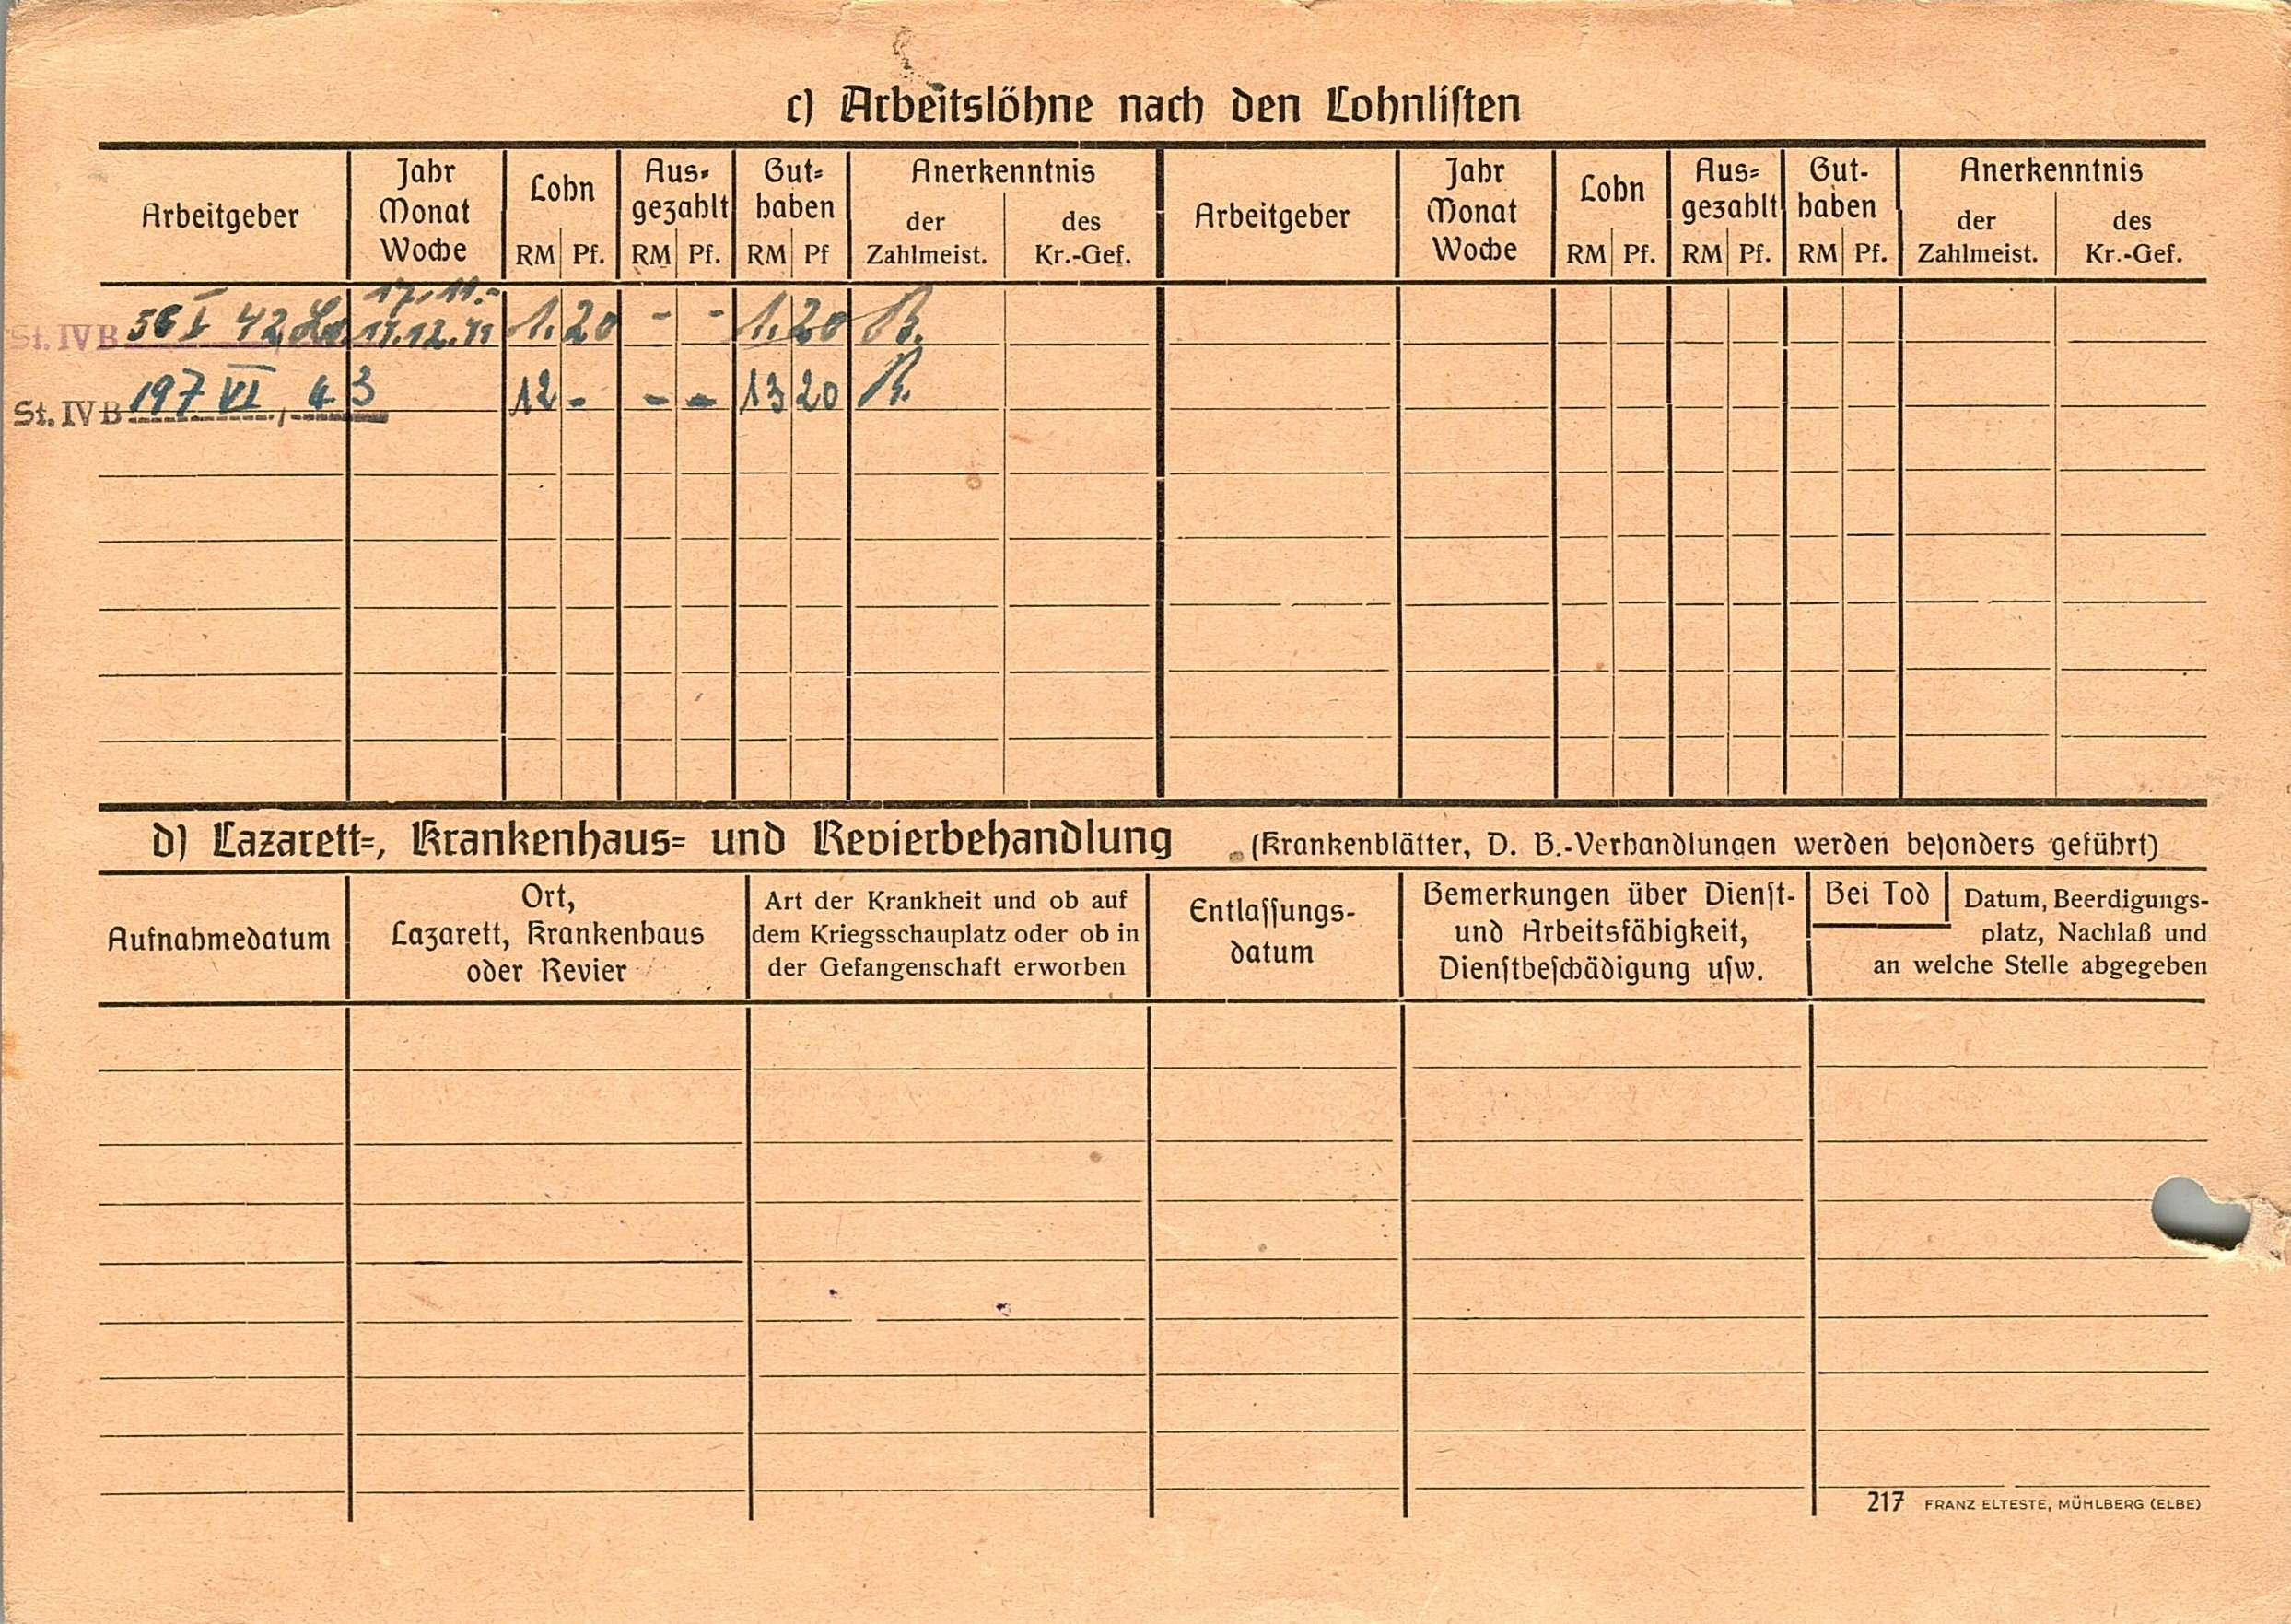 c) Arbeitslöhne nach den Lohnlisten
Arbeitgeber
Jahr
Monat
Woche
Lohn
RM Pf.
Aus-
gezahlt
RM Pf.
Gut-
haben
RM Pf
Anerkenntnis
der
Zahlmeist.
des
Kr.-Gef.
Arbeitgeber
Jahr
Monat
Woche
Lohn
RM Pf.
Aus-
gezahlt
RM Pf.
Gut-
haben
RM Pf.
Anerkenntnis
der
Zahlmeist.
des
Kr.-Gef.
17.11.-
St. IV B 56 I 42 17.12.41 1.20 - - 1.20
St. IV B 197 VI, 43 12 - - - 13 20
d) Lazarett-, Krankenhaus- und Revierbehandlung (Krankenblätter, D. B.-Verhandlungen werden besonders geführt)
Aufnahmedatum
Ort,
Lazarett, Krankenhaus
oder Revier
Art der Krankheit und ob auf
dem Kriegsschauplatz oder ob in
der Gefangenschaft erworben
Entlassungs-
datum
Bemerkungen über Dienst-
und Arbeitsfähigkeit,
Dienstbeschädigung usw.
Bei Tod Datum, Beerdigungs-
platz, Nachlaß und
an welche Stelle abgegeben
217 FRANZ ELTESTE, MÜHLBERG (ELBE)